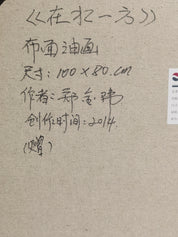 《在水一方》
布面油画
尺寸:100×80.cm
作者:郑金玮
创作时间:2014
(赠)